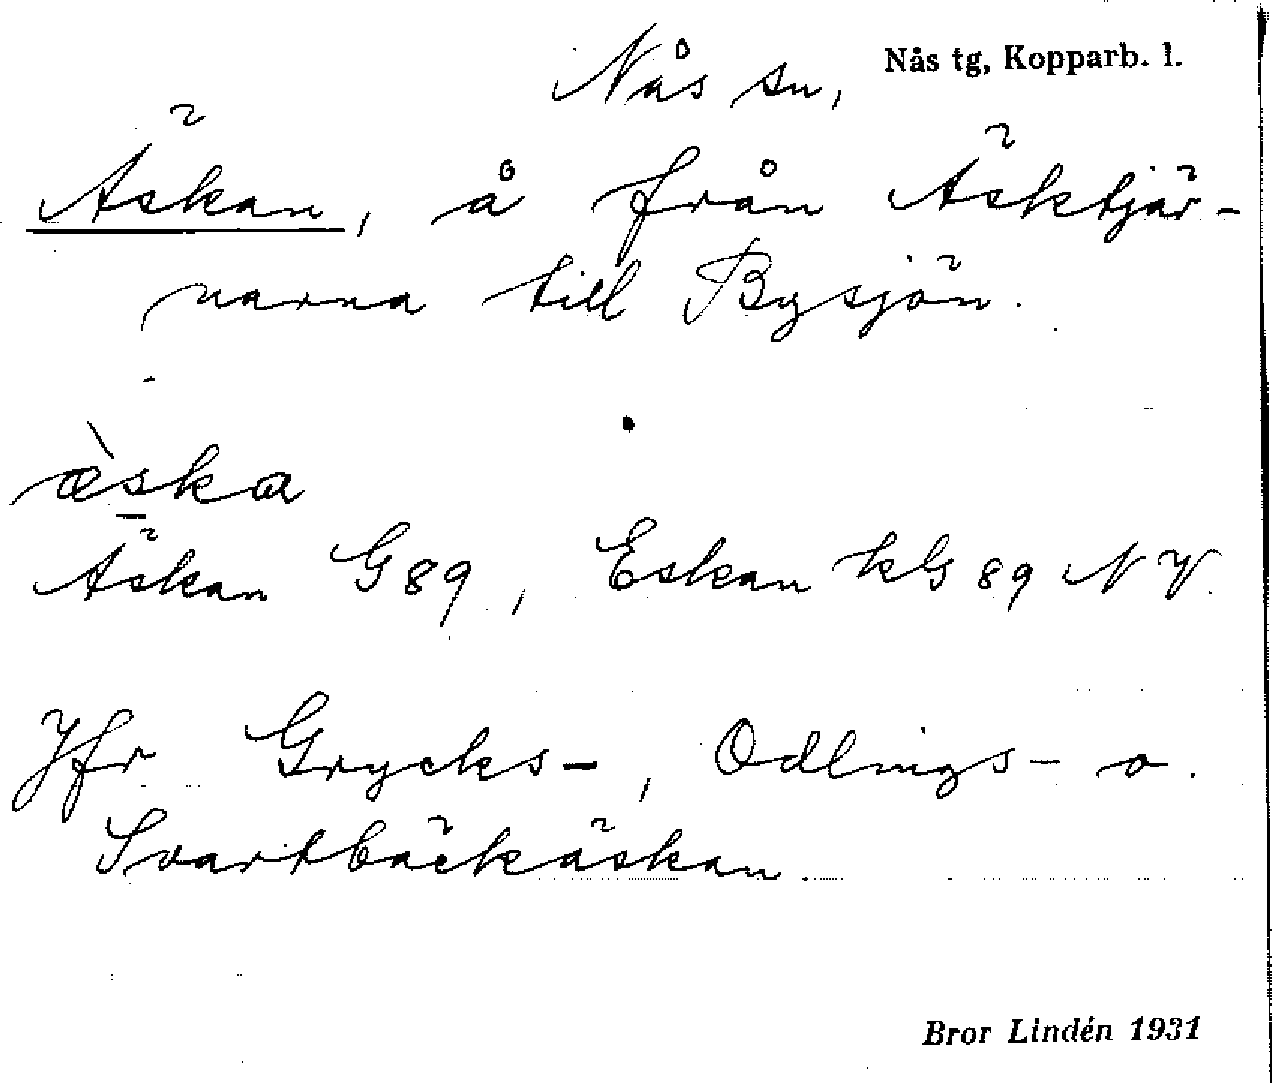 Nås sn, Nås tg, Kopparb. l.
Äskan, å från Äsktjär-
narna till Bysjön.
æ̀ska
Äskan G89, Eskan kG89 NV.
Jfr Grycks-, Odlings- o.
Svartbäckäskan
Bror Lindén 1931